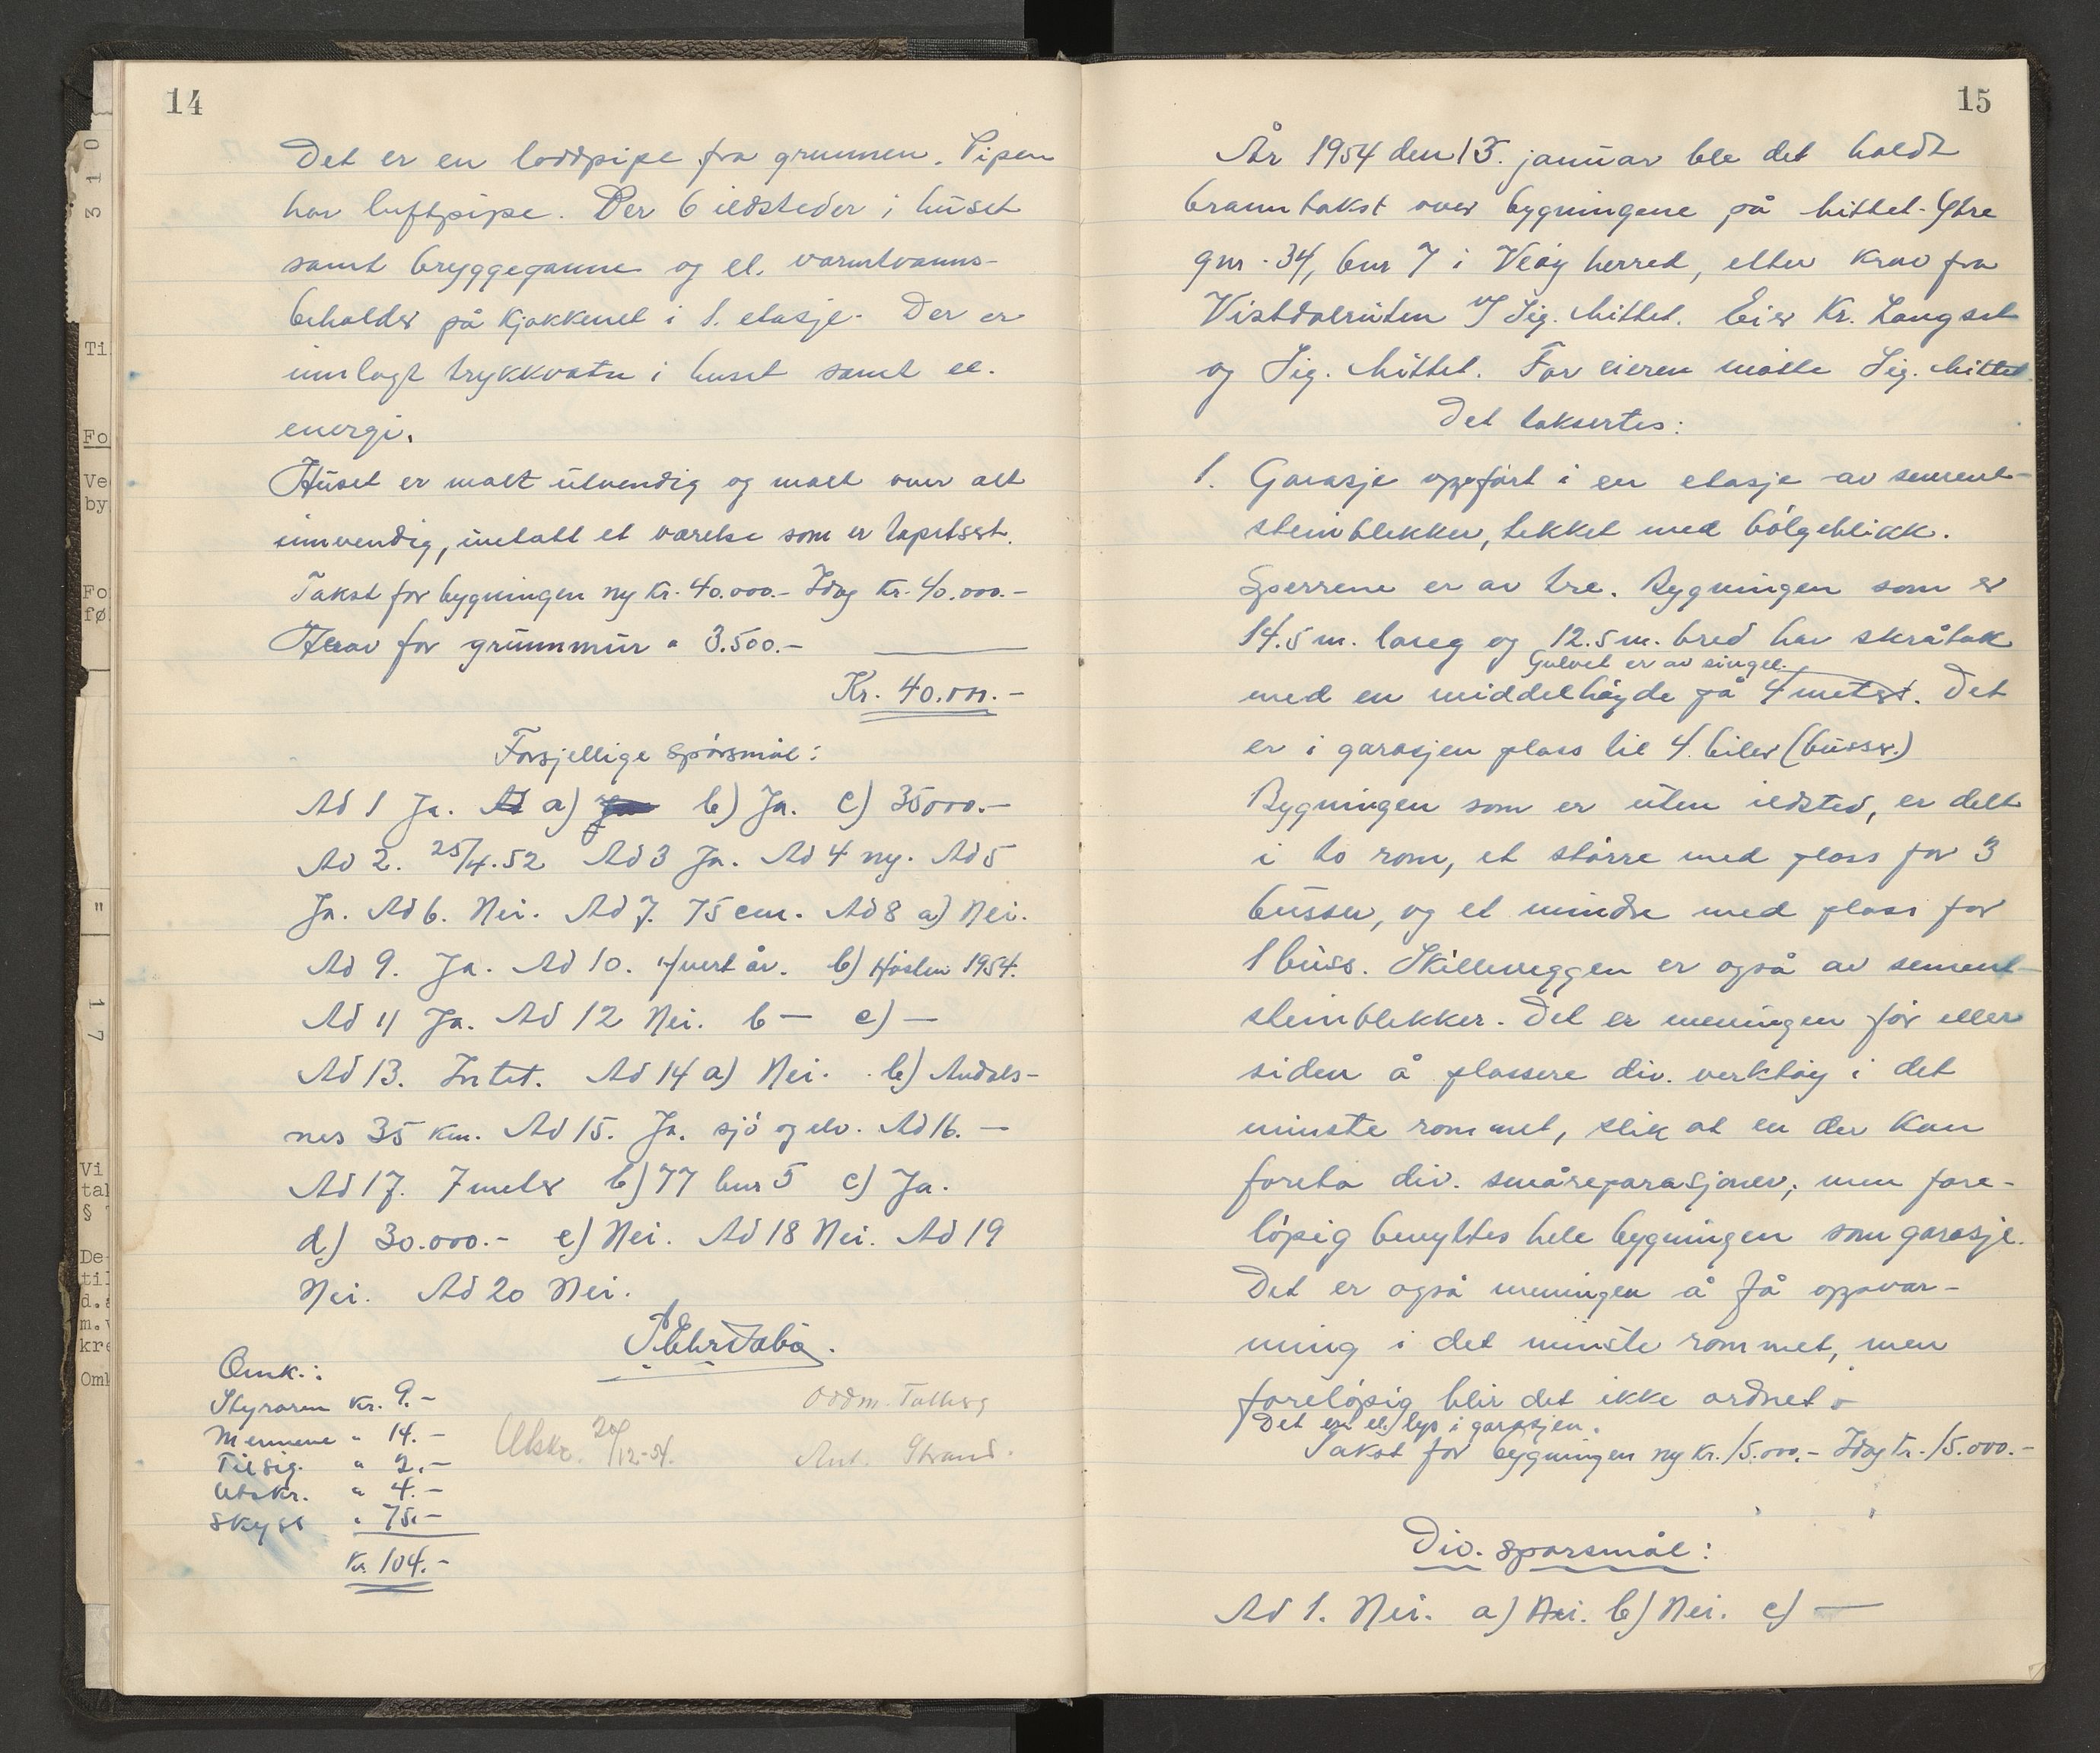 14
Det er en loddpipe fra grunnen. Pipen
har luftpipe. Der 6 ildsteder i huset
samt bryggepanne og el. varmtvanns-
beholder på kjøkkenet i 1. etasje. Der er
innlagt trykkvatn i huset samt el.
energi.
Huset er malt utvendig og malt over alt
innvendig, untatt et værelse som er tapetsert.
Takst for bygningen ny kr. 40.000.- Idag kr. 40.000.-
Herav for grunnmur " 3.500.-
Kr. 40.000.-
Forsjellige spörsmål:
Ad 1 Ja. a) b) Ja. c) 35000.-
Ad 2. 25/4.52 Ad 3 Ja. Ad 4 ny. Ad 5
Ja. Ad 6. Nei. Ad 7. 75 cm. Ad 8 a) Nei.
Ad 9. Ja. Ad 10. Hvert år. b) Hösten 1954.
Ad 11 Ja. Ad 12 Nei. b — c) —
Ad 13. Intet. Ad 14 a) Nei. b) Åndals-
nes 35 km. Ad 15. Ja. sjö og elv. Ad 16. —
Ad 17. 7 meter b) 77 bnr 5 c) Ja.
d) 30.000.- e) Nei. Ad 18 Nei. Ad 19
Nei. Ad 20 Nei.
Omk.:
Styraren kr. 9.-
Mennene " 14.-
Tilsig. " 2.-
Utskr. " 4.-
Skyss " 75.-
Kr. 104.-
Utskr. 20/12-54.
Oddm. Talberg
Ant. Strand.
15
År 1954 den 13. januar ble det holdt
branntakst over bygningene på Mittet-Ytre
gnr. 34, bnr 7 i Veöy herred, etter krav fra
Vistdalruten v/ Sig. Mittet. Eier Kr. Langset
og Sig. Mittet. For eieren mötte Sig. Mittet.
Det taksertes:
1. Garasje oppfört i en etasje av sement-
steinblekker, tekket med bölgeblikk.
Sperrene er av tre. Bygningen som er
14.5 m. lang og 12.5 m. bred har skråtak
Gulvet er av singel.
med en middelhöyde på 4 meter. Det
er i garasjen plass til 4 biler (busser.)
Bygningen som er uten ildsted, er delt
i to rom, et större med plass for 3
busser, og et mindre med plass for
1 buss. Skilleveggen er også av sement-
steinblekker. Det er meningen för eller
siden å plassere div. verktöy i det
minste rommet, slik at en der kan
foreta div. småreparasjoner, men fore-
löpig benyttes hele bygningen som garasje.
Det er også meningen å få oppvar-
ming i det minste rommet, men
forelöpig blir det ikke ordnet.
Det er el. lys i garasjen.
Takst for bygningen ny kr. 15.000.- Idag kr. 15.000.-
Div. spørsmål:
Ad 1. Nei. a) Nei. b) Nei. c) —